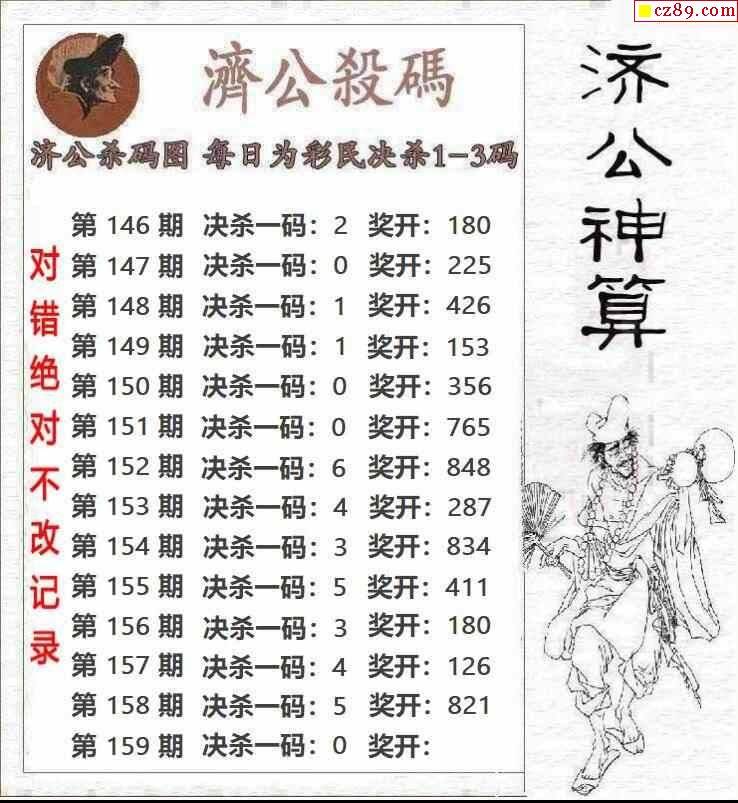 cz89.com
濟公殺碼
济公杀码图 每日为彩民决杀1-3码
第 146 期 决杀一码：2 奖开：180
第 147 期 决杀一码：0 奖开：225
第 148 期 决杀一码：1 奖开：426
第 149 期 决杀一码：1 奖开：153
第 150 期 决杀一码：0 奖开：356
第 151 期 决杀一码：0 奖开：765
第 152 期 决杀一码：6 奖开：848
第 153 期 决杀一码：4 奖开：287
第 154 期 决杀一码：3 奖开：834
第 155 期 决杀一码：5 奖开：411
第 156 期 决杀一码：3 奖开：180
第 157 期 决杀一码：4 奖开：126
第 158 期 决杀一码：5 奖开：821
第 159 期 决杀一码：0 奖开：
对错绝对不改记录
济公神算